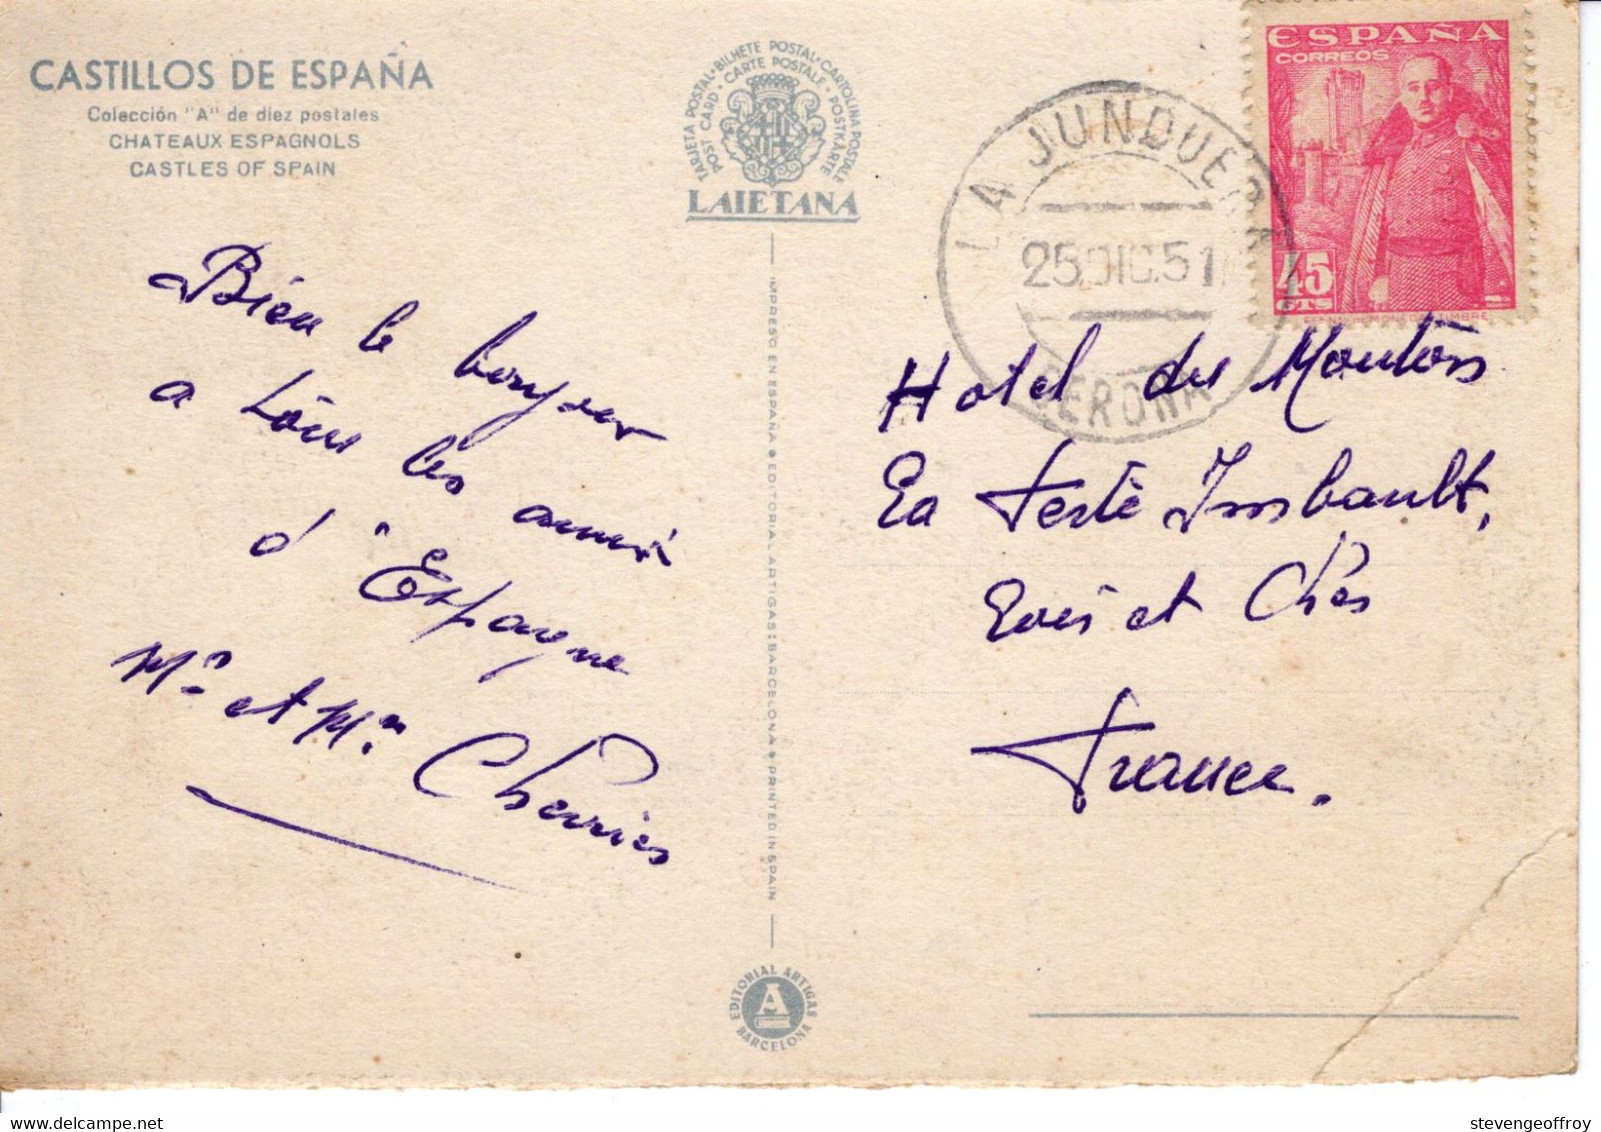 CASTILLOS DE ESPAÑA
Colección "A" de diez postales
CHATEAUX ESPAGNOLS
CASTLES OF SPAIN
TARJETA POSTAL · BILHETE POSTAL · CARTOLINA POSTALE
POST CARD · CARTE POSTALE · POSTKARTE
LAIETANA
LA JUNQUERA
25 DIC. 51
GERONA
ESPAÑA
CORREOS
45
CTS
Bien le bonjour
a tous les amis
d'Espagne
Mr et Mm Cherrier
IMPRESO EN ESPAÑA • EDITORIAL ARTIGAS: BARCELONA • PRINTED IN SPAIN
Hotel du Mouton
La Ferté Imbault,
Loir et Cher
France.
EDITORIAL ARTIGAS
A
BARCELONA
stevengeoffroy